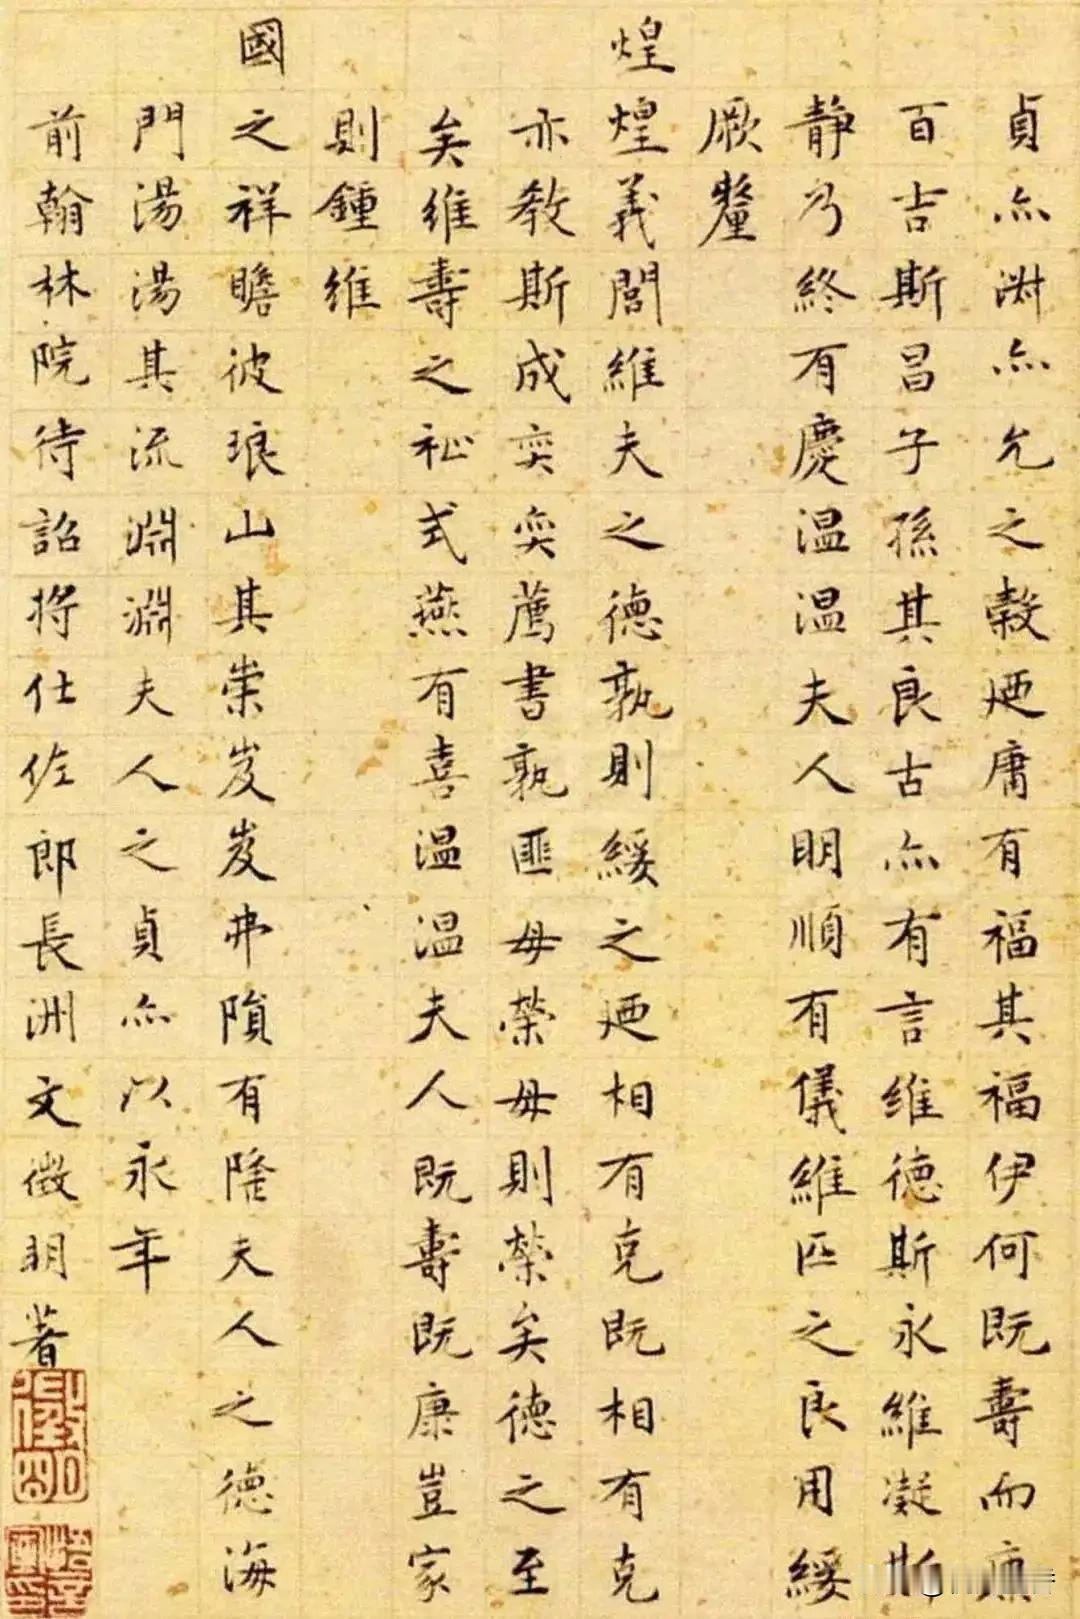 貞亦淵亦允之穀廼庸有福其福伊何既壽而康
百吉斯昌子孫其良古亦有言維德斯永維凝斯
靜乃終有慶温温夫人明順有儀維匹之良用綏
厥釐
煌煌義閭維夫之德孰則綏之廼相有克既相有克
亦教斯成奕奕薦書孰匪母榮母則榮矣德之至
矣維壽之祉式燕有喜温温夫人既壽既康豈家
則鍾維
國之祥瞻彼琅山其崇岌岌弗隕有隆夫人之德海
門湯湯其流淵淵夫人之貞亦以永年
前翰林院待詔將仕佐郎長洲文徵明著
徵明印
悟言室印